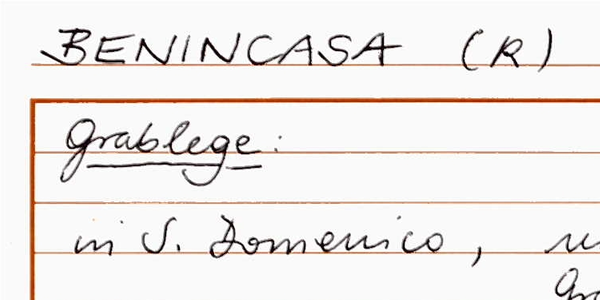 BENINCASA (R)
Grablege:
in S. Domenico,